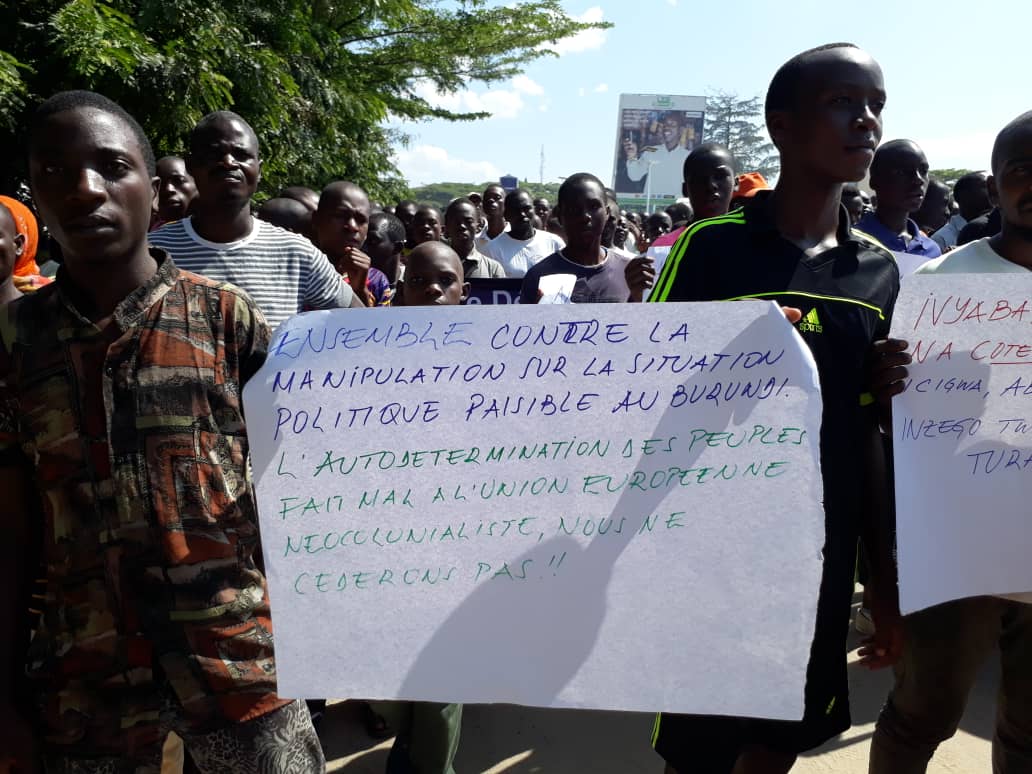 ENSEMBLE CONTRE LA
MANIPULATION SUR LA SITUATION
POLITIQUE PAISIBLE AU BURUNDI.
L'AUTODETERMINATION DES PEUPLES
FAIT MAL A L'UNION EUROPEENNE
NEOCOLONIALISTE, NOUS NE
CEDERONS PAS!!
IVYABA
NA COTE
ICIGWA,
INZEGO TW
TURA